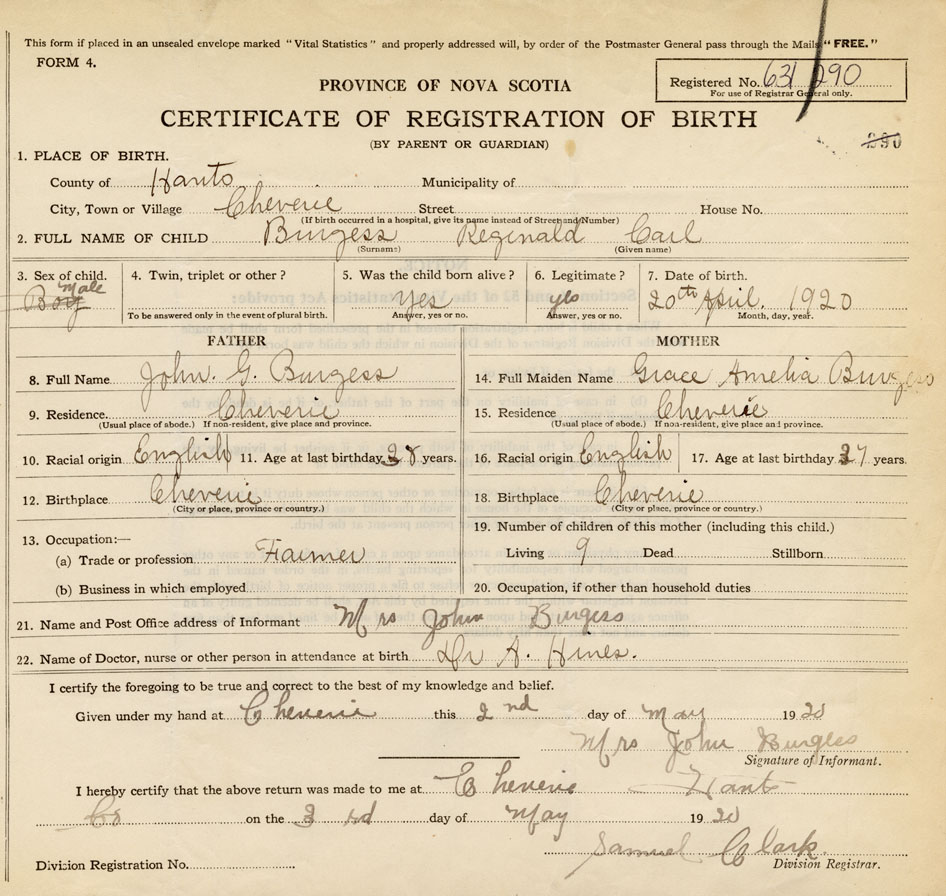 This form if placed in an unsealed envelope marked "Vital Statistics" and properly addressed will, by order of the Postmaster General pass through the Mails "FREE."
FORM 4.
Registered No. 631 290
For use of Registrar General only.
PROVINCE OF NOVA SCOTIA
CERTIFICATE OF REGISTRATION OF BIRTH
(BY PARENT OR GUARDIAN)
290
1. PLACE OF BIRTH.
County of Hants Municipality of
City, Town or Village Cheverie Street House No.
(If birth occurred in a hospital, give its name instead of Street and Number)
2. FULL NAME OF CHILD Burgess Reginald Carl
(Surname) (Given name)
3. Sex of child. 4. Twin, triplet or other? 5. Was the child born alive? 6. Legitimate? 7. Date of birth.
Male
Boy Yes yes 20th April. 1920
To be answered only in the event of plural birth. Answer, yes or no. Answer, yes or no. Month, day, year.
FATHER MOTHER
8. Full Name John. G. Burgess 14. Full Maiden Name Grace Amelia Burgess
9. Residence. Cheverie 15. Residence Cheverie
(Usual place of abode.) If non-resident, give place and province. (Usual place of abode.) If non-resident, give place and province.
10. Racial origin English 11. Age at last birthday 38 years. 16. Racial origin English 17. Age at last birthday 37 years.
12. Birthplace Cheverie 18. Birthplace Cheverie
(City or place, province or country.) (City or place, province or country.)
13. Occupation:— 19. Number of children of this mother (including this child.)
(a) Trade or profession Farmer Living 9 Dead Stillborn
(b) Business in which employed 20. Occupation, if other than household duties
21. Name and Post Office address of Informant Mrs John Burgess
22. Name of Doctor, nurse or other person in attendance at birth Dr A. Hines.
I certify the foregoing to be true and correct to the best of my knowledge and belief.
Given under my hand at Cheverie this 2nd day of May 1920
Mrs John Burgess
Signature of Informant.
I hereby certify that the above return was made to me at Cheverie Hants
Co on the 3 rd day of May 1920
Samuel Clark
Division Registration No. Division Registrar.